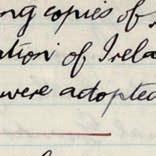 ng copies of
ation of Irela
were adopted